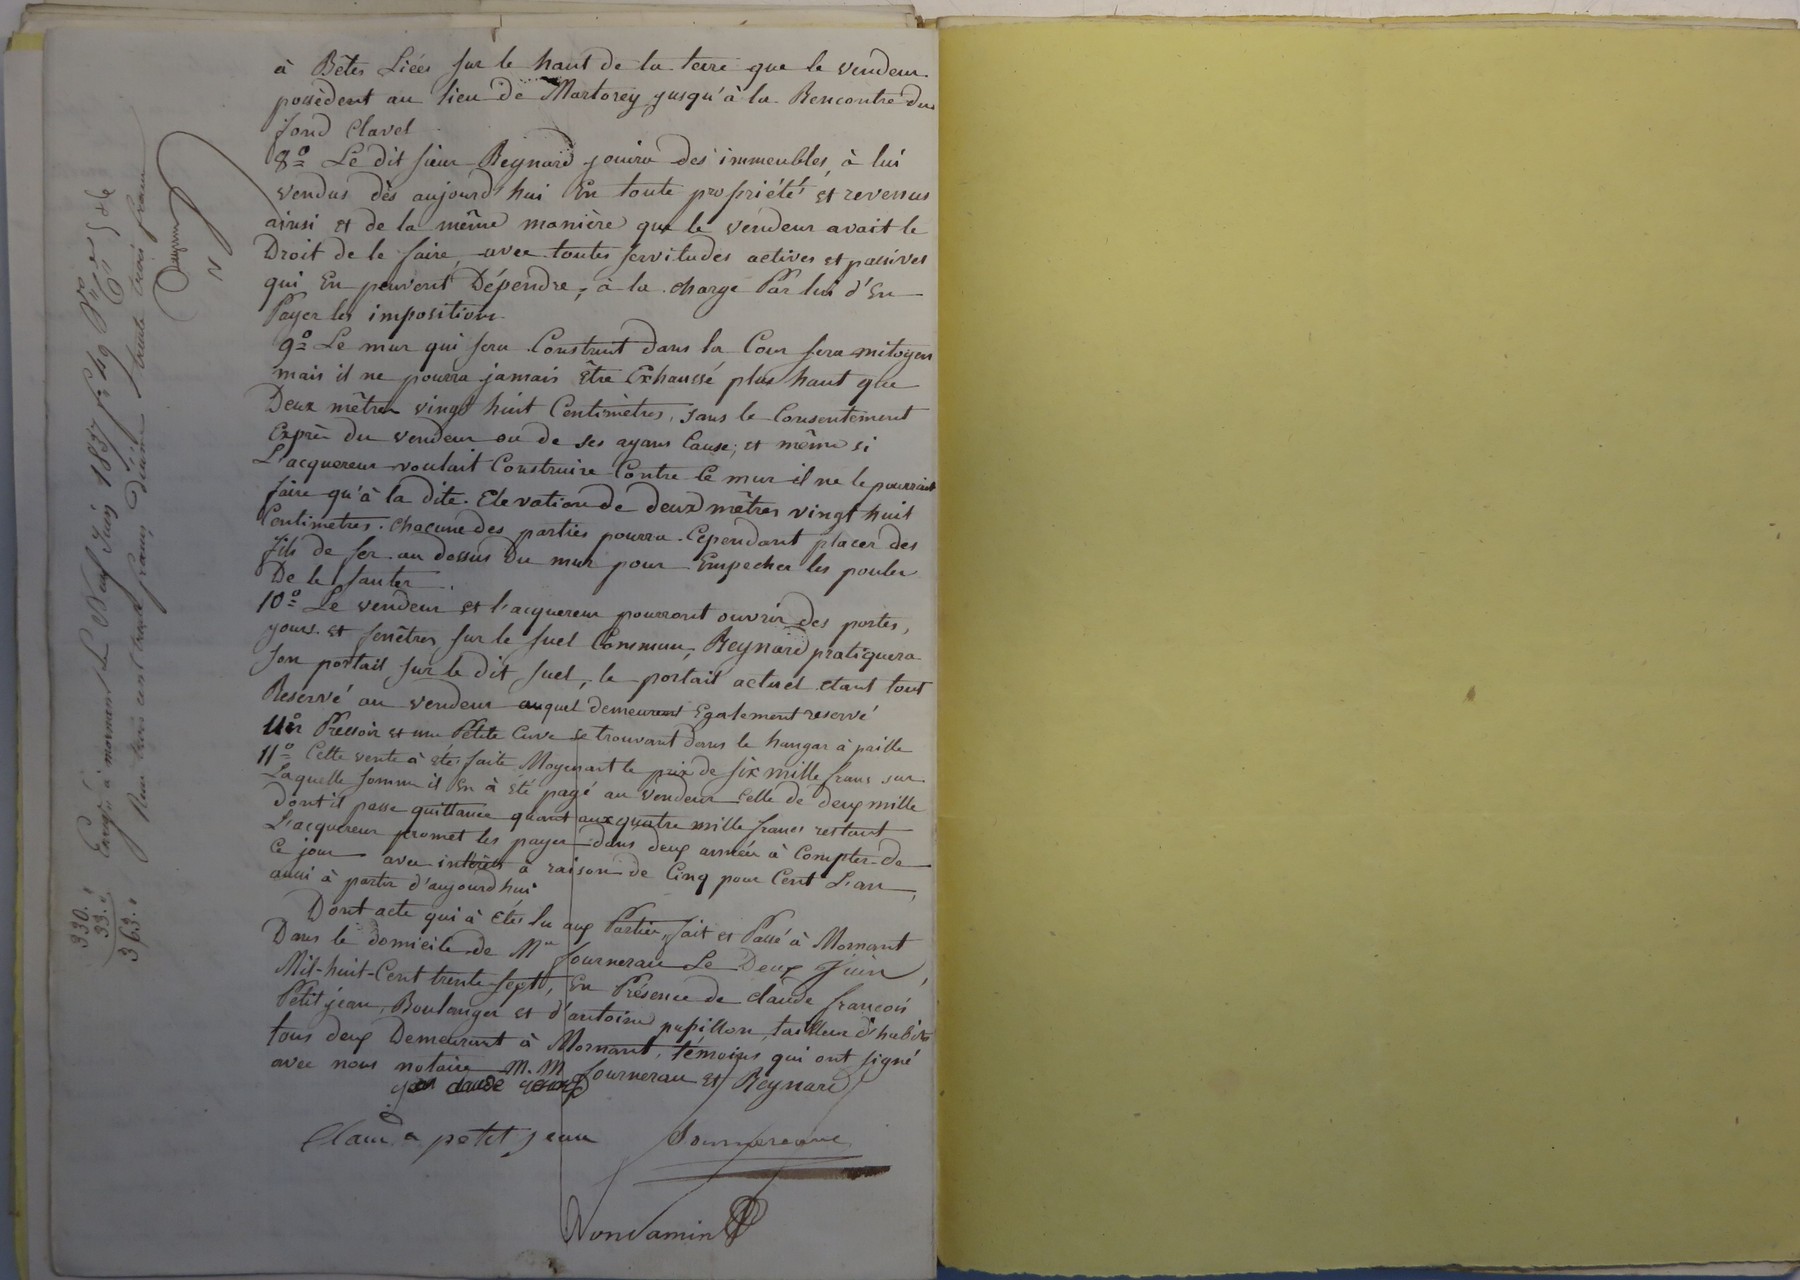 à Bêtes Liées sur le haut de la terre que le vendeur
possèdent au lieu de Martorey jusqu'à la Rencontre du
fond Clavel
8º Le dit sieur Reynard jouira des immeubles, à lui
vendus dès aujourd'hui En toute propriété et revenus
ainsi et de la même manière que le vendeur avait le
Droit de le faire, avec toutes servitudes actives et passives
qui En peuvent Dépendre, à la charge Par lui d'En
Payer les impositions.
9º Le mur qui sera Construit dans la Cour sera mitoyen
mais il ne pourra jamais être Exhaussé plus haut que
Deux mètres vingt huit Centimètres, sans le Consentement
Exprès du vendeur ou de ses ayans Cause; et même si
L'acquereur voulait Construire Contre le mur il ne le pourrait
faire qu'à la dite Elevation de deux mètres vingt huit
Centimetres. chacune des parties pourra Cependant placer des
fils de fer au dessus du mur pour Empecher les poules
De le sauter.
10º Le vendeur et l'acquereur pourront ouvrir des portes,
jours et fenêtres sur le suel Commun, Reynard pratiquera
son portail sur le dit suel, le portail actuel etant tout
Reservé au vendeur auquel demeurent Egalement reservé
un Pressoir et une Petite Cuve se trouvant dans le hangar à paille
11º Cette vente à été faite Moyenant le prix de six mille francs sur
Laquelle somme il En à été payé au vendeur celle de deux mille
dont il passe quittance quant aux quatre mille francs restant
L'acquereur promet les payer dans deux années à Compter de
Ce jour avec intérêts à raison de Cinq pour Cent L'an,
aussi à partir d'aujourd'hui
Dont acte qui à été lu aux Parties, fait et Passé à Mornant
Dans le domicile de Mr fournereau Le Deux Juin,
Mil-huit-Cent trente sept, En Présence de claude francois
Petit jean, Boulanger et d'antoine papillon, tailleur d'habits
tous deux Demeurant à Mornant, témoins qui ont signé
avec nous notaire M.M. fournereau et Reynard
Claude petit jean fournereau
Condamin
Enregé à mornant Le Neuf Juin 1837 fº 49
Reçu trois cent trente francs, dixième trente trois francs
330.
33.
363.